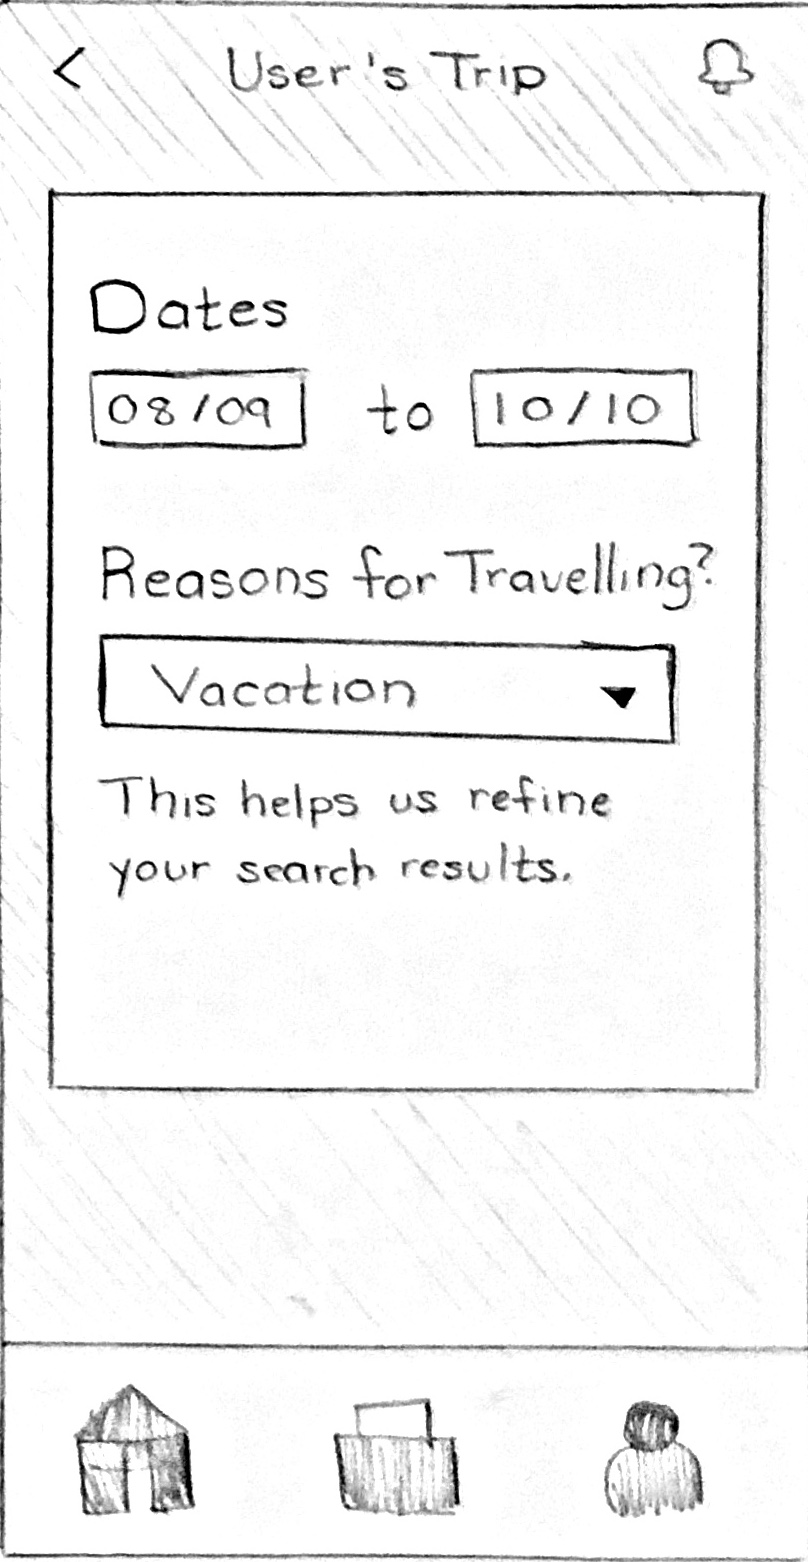 < User's Trip
Dates
08/09 to 10/10
Reasons for Travelling?
Vacation
This helps us refine
your search results.